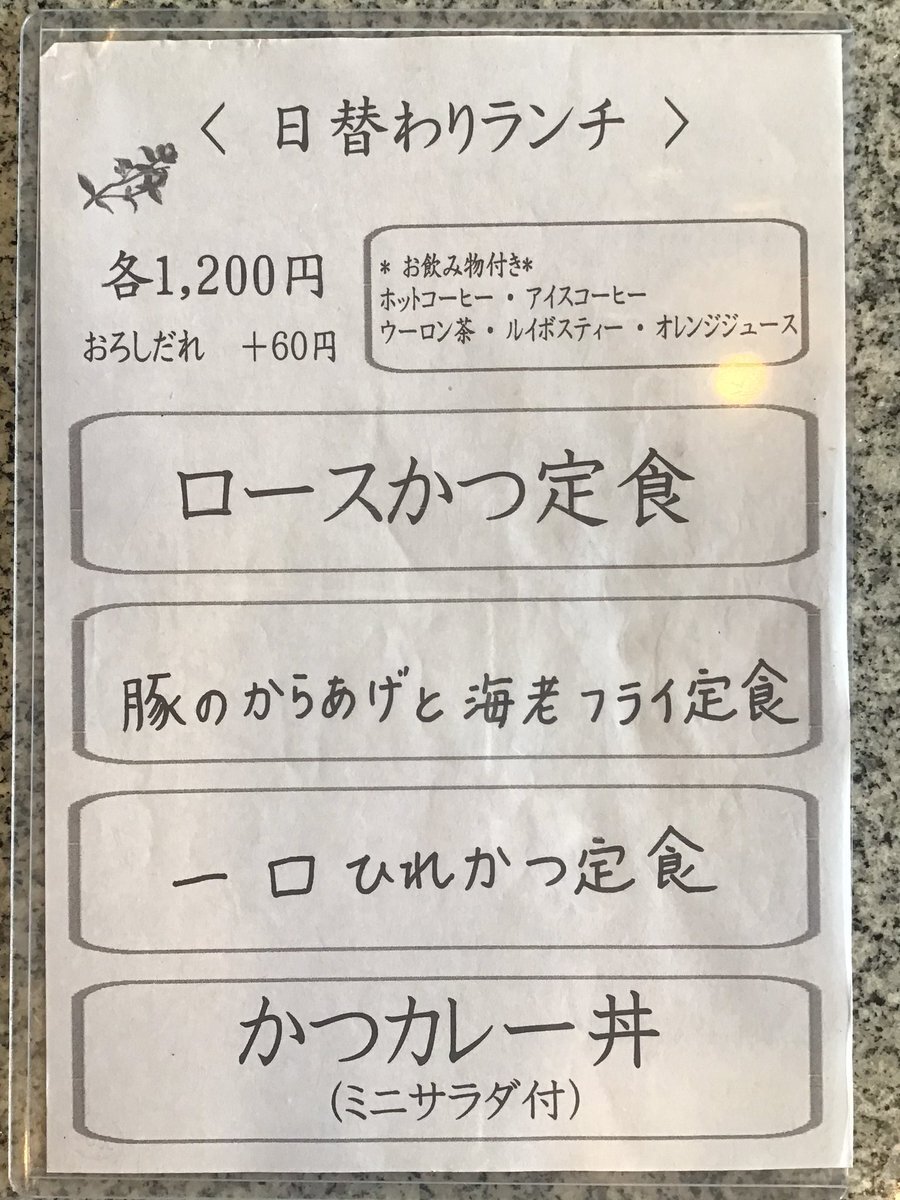 〈 日替わりランチ 〉
各1,200円
おろしだれ ＋60円
* お飲み物付き*
ホットコーヒー・アイスコーヒー
ウーロン茶・ルイボスティー・オレンジジュース
ロースかつ定食
豚のからあげと海老フライ定食
一口ひれかつ定食
かつカレー丼
(ミニサラダ付)